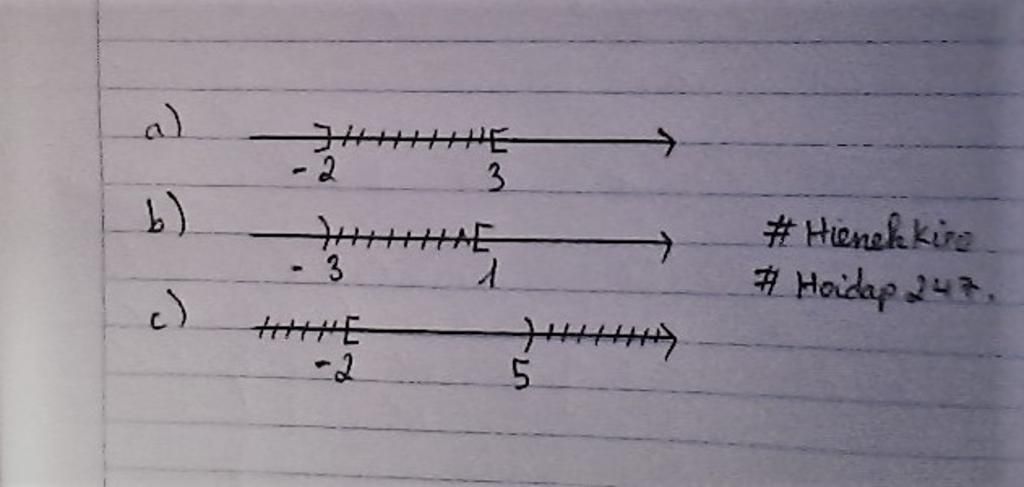 a)
]
[
-2
3
b)
)
[
-3
1
# Hoidap 247.
c)
[
)
-2
5